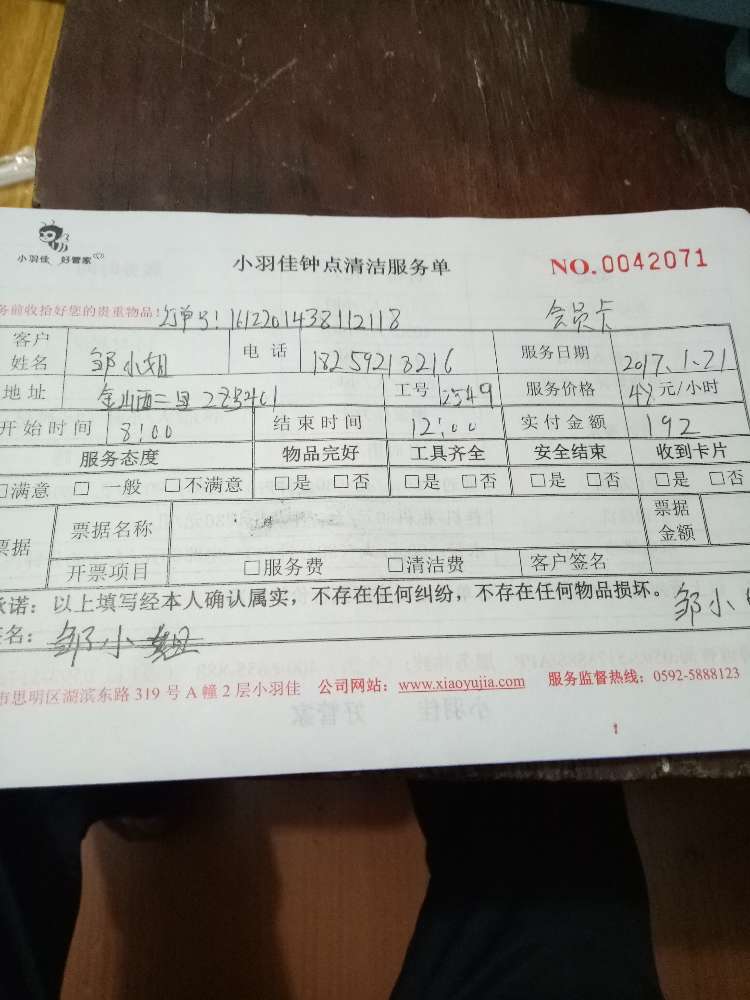 小羽佳 好管家
小羽佳钟点清洁服务单
NO.0042071
务前收拾好您的贵重物品!
订单号:1612201438112118
会员卡
客户姓名 邹小姐 电话 18259213216 服务日期 2017.1.21
地址 金山西二里 工号 2549 服务价格 48元/小时
开始时间 8:00 结束时间 12:00 实付金额 192
服务态度 物品完好 工具齐全 安全结束 收到卡片
□满意 □一般 □不满意 □是 □否 □是 □否 □是 □否 □是 □否
票据 票据名称 票据金额
开票项目 □服务费 □清洁费 客户签名
承诺:以上填写经本人确认属实,不存在任何纠纷,不存在任何物品损坏。 邹小
签名:邹小姐
市思明区湖滨东路319号A幢2层小羽佳 公司网站:www.xiaoyujia.com 服务监督热线:0592-5888123